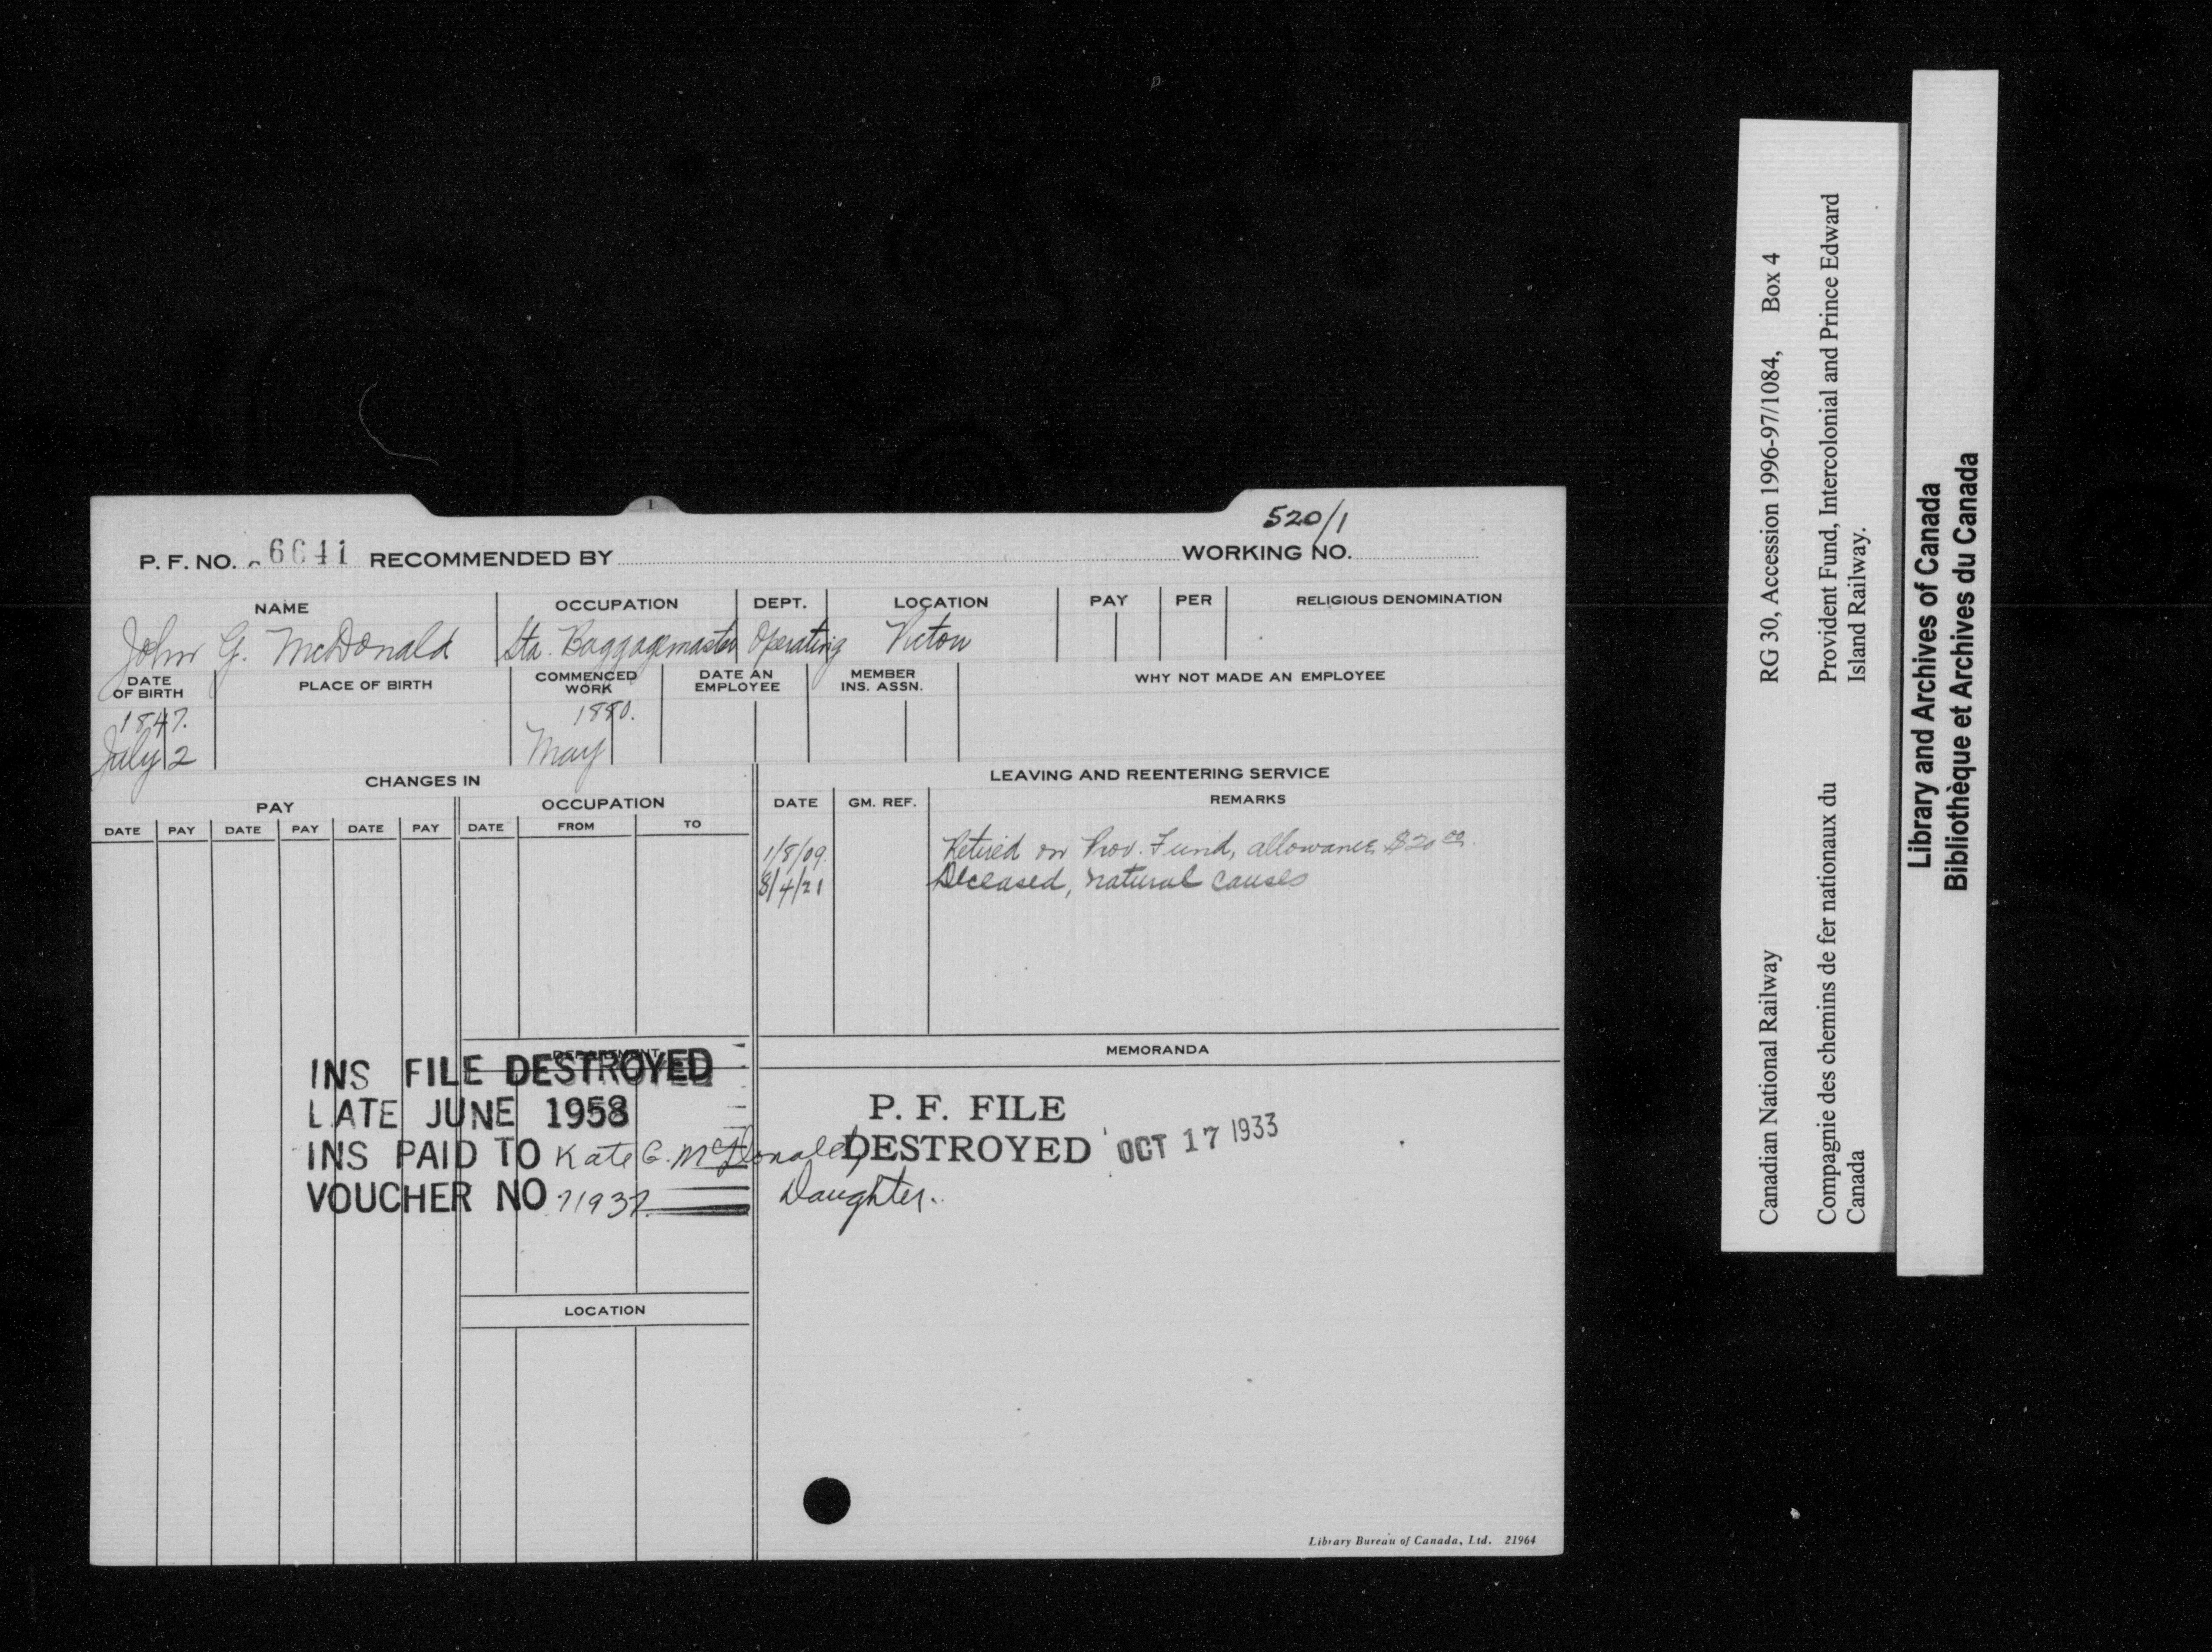 520/1
P. F. NO. 6641 RECOMMENDED BY WORKING NO.
NAME OCCUPATION DEPT. LOCATION PAY PER RELIGIOUS DENOMINATION
John G. McDonald Sta. Baggagemaster Operating Pictou
DATE OF BIRTH PLACE OF BIRTH COMMENCED WORK DATE AN EMPLOYEE MEMBER INS. ASSN. WHY NOT MADE AN EMPLOYEE
1847. 1880.
July 2 May
CHANGES IN LEAVING AND REENTERING SERVICE
PAY OCCUPATION DATE GM. REF. REMARKS
DATE PAY DATE PAY DATE PAY DATE FROM TO
1/8/09. Retired on Prov. Fund, allowance $20.00.
8/4/21 Deceased, natural causes
DEPARTMENT MEMORANDA
INS FILE DESTROYED
LATE JUNE 1958
INS PAID TO Kate G. McDonald,
VOUCHER NO 71937 Daughter.
P. F. FILE
DESTROYED OCT 17 1933
LOCATION
Library Bureau of Canada, Ltd. 21964
Canadian National Railway RG 30, Accession 1996-97/1084, Box 4
Compagnie des chemins de fer nationaux du Provident Fund, Intercolonial and Prince Edward
Canada Island Railway.
Library and Archives of Canada
Bibliothèque et Archives du Canada